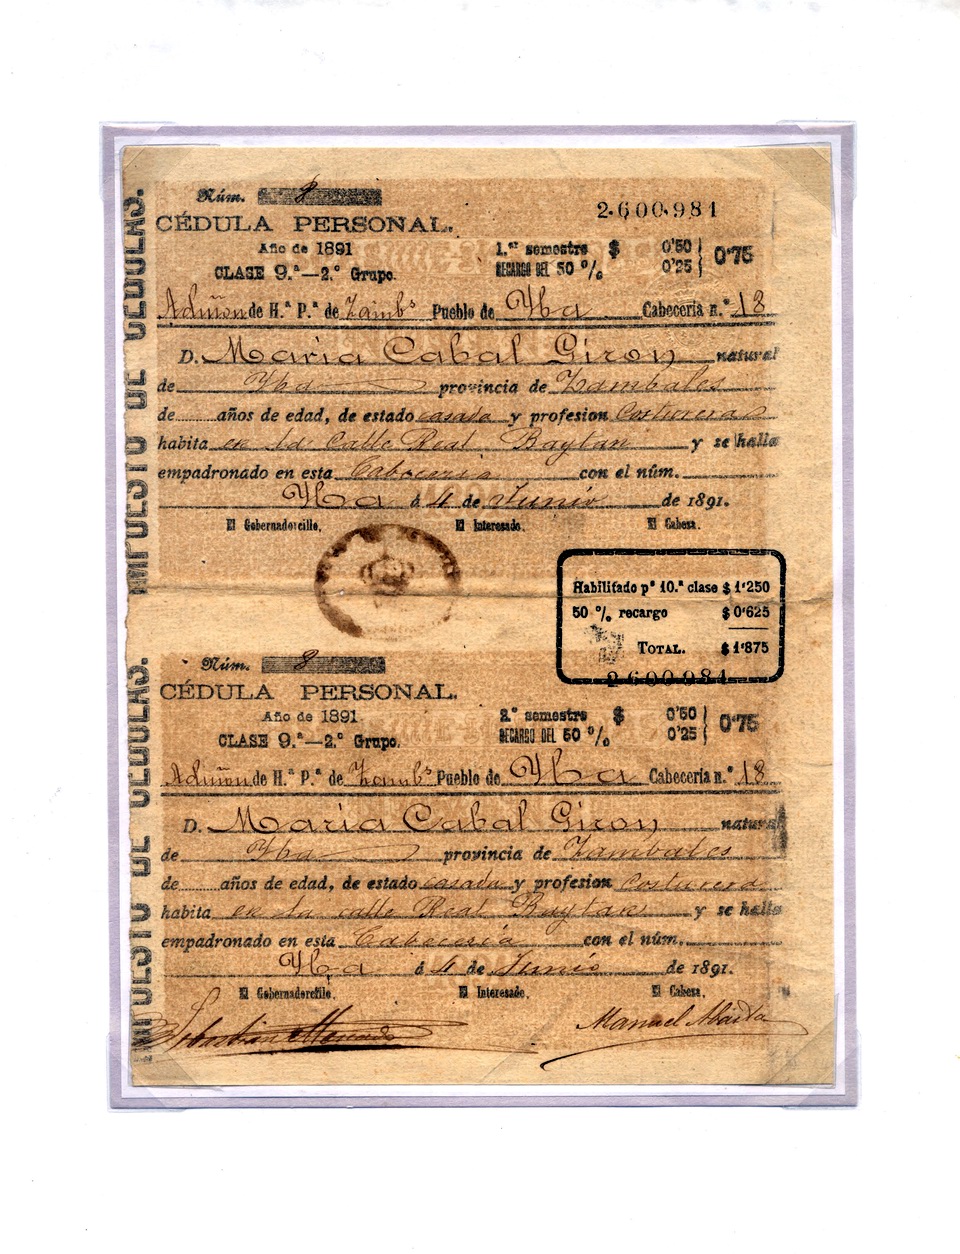 IMPUESTO DE CEDULAS.
Núm. 8
2.600.981
CÉDULA PERSONAL.
Año de 1891
CLASE 9.ª—2.º Grupo.
1.er semestre $ 0'50
RECARGO DEL 50 % 0'25
0'75
Admon de H.ª P.ª de Zamb.s Pueblo de Yba Cabecería n.º 18
D. Maria Cabal Giron natural
de Yba provincia de Zambales
de años de edad, de estado casada y profesion Costurera
habita en la calle Real Baytan y se halla
empadronado en esta Cabeceria con el núm.
Yba á 4 de Junio de 1891.
El Gobernadorcillo, El Interesado, El Cabeza,
Habilitado pª 10.ª clase $ 1'250
50 % recargo $ 0'625
TOTAL. $ 1'875
2.600.981
IMPUESTO DE CEDULAS.
Núm. 8
CÉDULA PERSONAL.
Año de 1891
CLASE 9.ª—2.º Grupo.
2.º semestre $ 0'50
RECARGO DEL 50 % 0'25
0'75
Admon de H.ª P.ª de Zamb.s Pueblo de Yba Cabecería n.º 18
D. Maria Cabal Giron natural
de Yba provincia de Zambales
de años de edad, de estado casada y profesion Costurera
habita en la calle Real Baytan y se halla
empadronado en esta Cabeceria con el núm.
Yba á 4 de Junio de 1891.
El Gobernadorcillo, El Interesado, El Cabeza,
Sebastian
Manuel